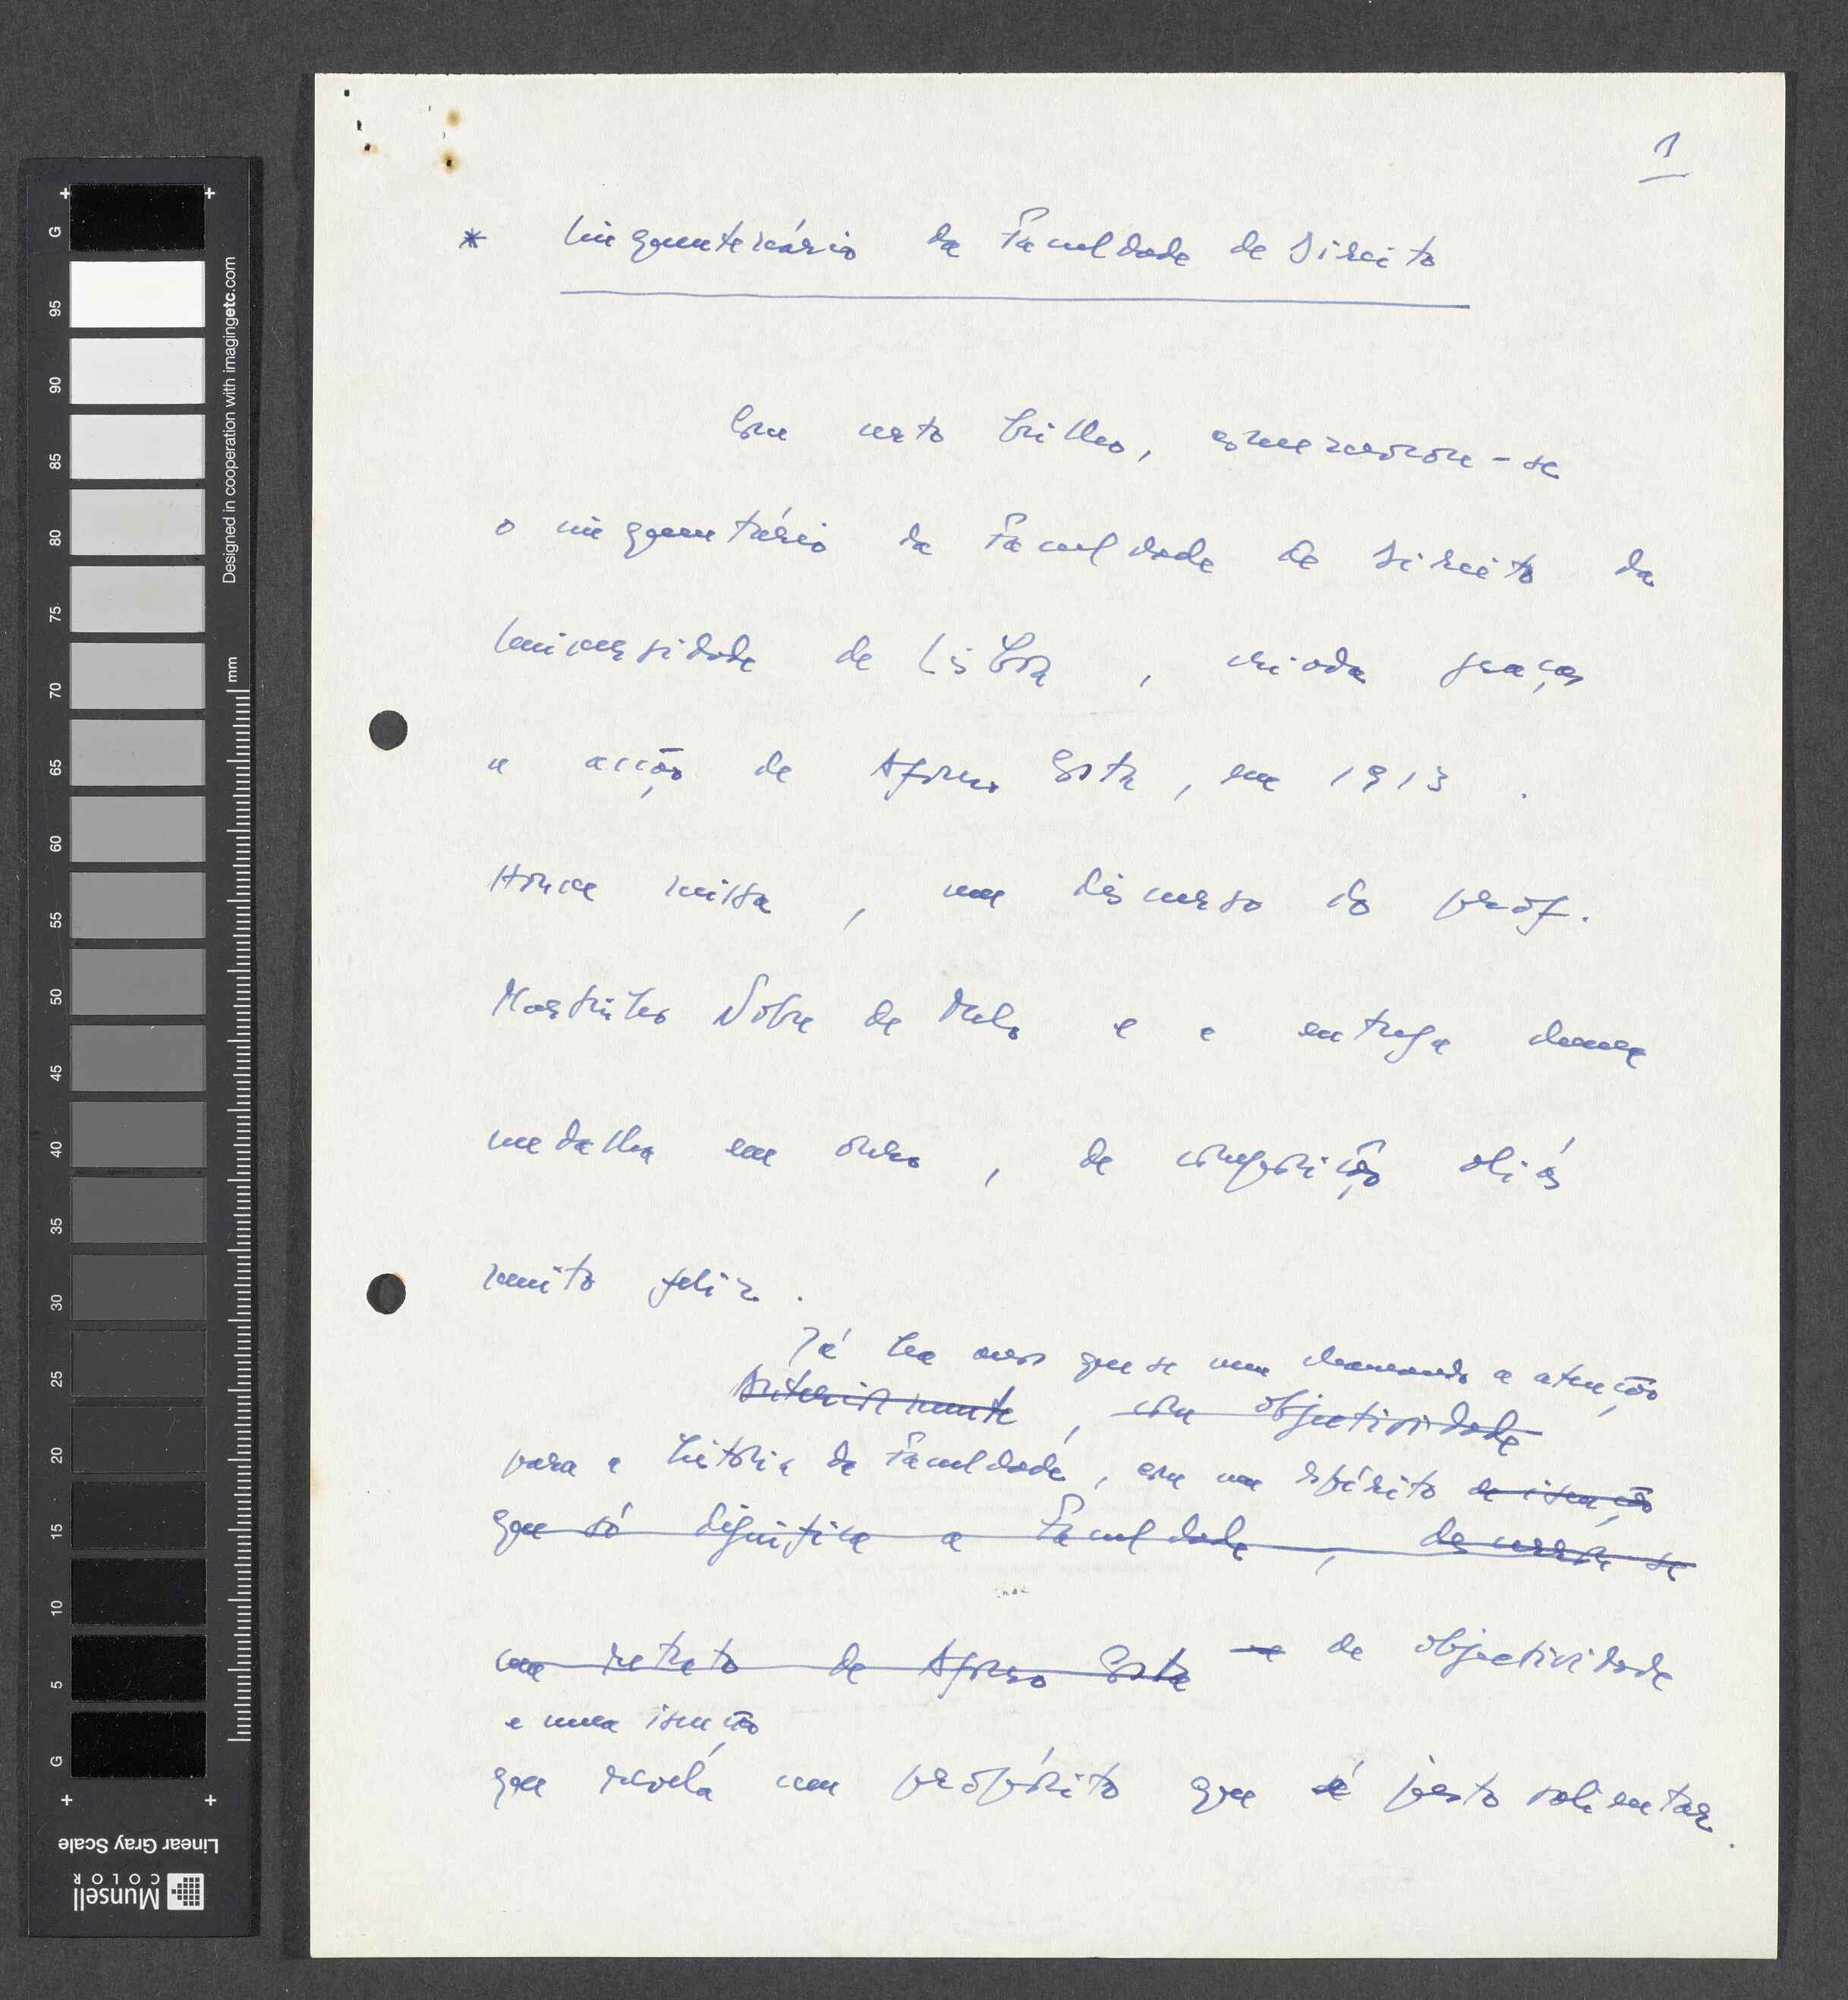 1
* Cinquentenário da Faculdade de Direito
Com certo brilho, comemorou-se
o cinquentário da Faculdade de Direito da
Universidade de Lisboa, criada graças
a acção de Afonso Costa, em 1913.
Houve missa, um discurso do prof.
Martinho Nobre de Melo e a entrega duma
medalha em ouro, de composição aliás
muito feliz.
Já há anos que se vem chamando a atenção
Anteriormente, com objectividade
para a história da Faculdade, com um espírito de isenção
que só dignifica a Faculdade, descerrou-se
um retrato de Afonso Costa e de objectividade
e numa isenção
que revela um propósito que é justo salientar.
G
95
90
85
80
75
70
65
60
55
50
45
40
35
30
25
20
15
10
5
G
Designed in cooperation with imagingetc.com
mm
Linear Gray Scale
Munsell
COLOR